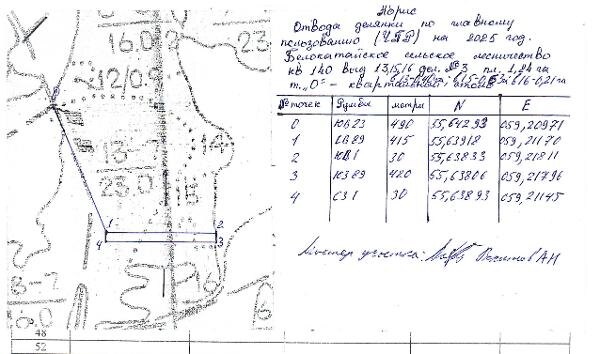 Абрис
Отвода делянки по главному
пользованию (ЧПР) на 2025 год.
Белокатайское сельское лесничество
кв 120 выд 13,15,16 дел. №3 пл. 1,24 га
т. "0" - квартальный столб
№ точек Румбы метры N E
0 ЮВ 23 490 55,64293 059,20971
1 ЮВ 89 415 55,63918 059,21170
2 ЮВ 1 30 55,63833 059,21811
3 ЮЗ 89 420 55,63806 059,21796
4 СЗ 1 30 55,63893 059,21145
Мастер участка:
16.0
23
12/0.9
13-2
23.0
14
1
2
4
3
16
48
52